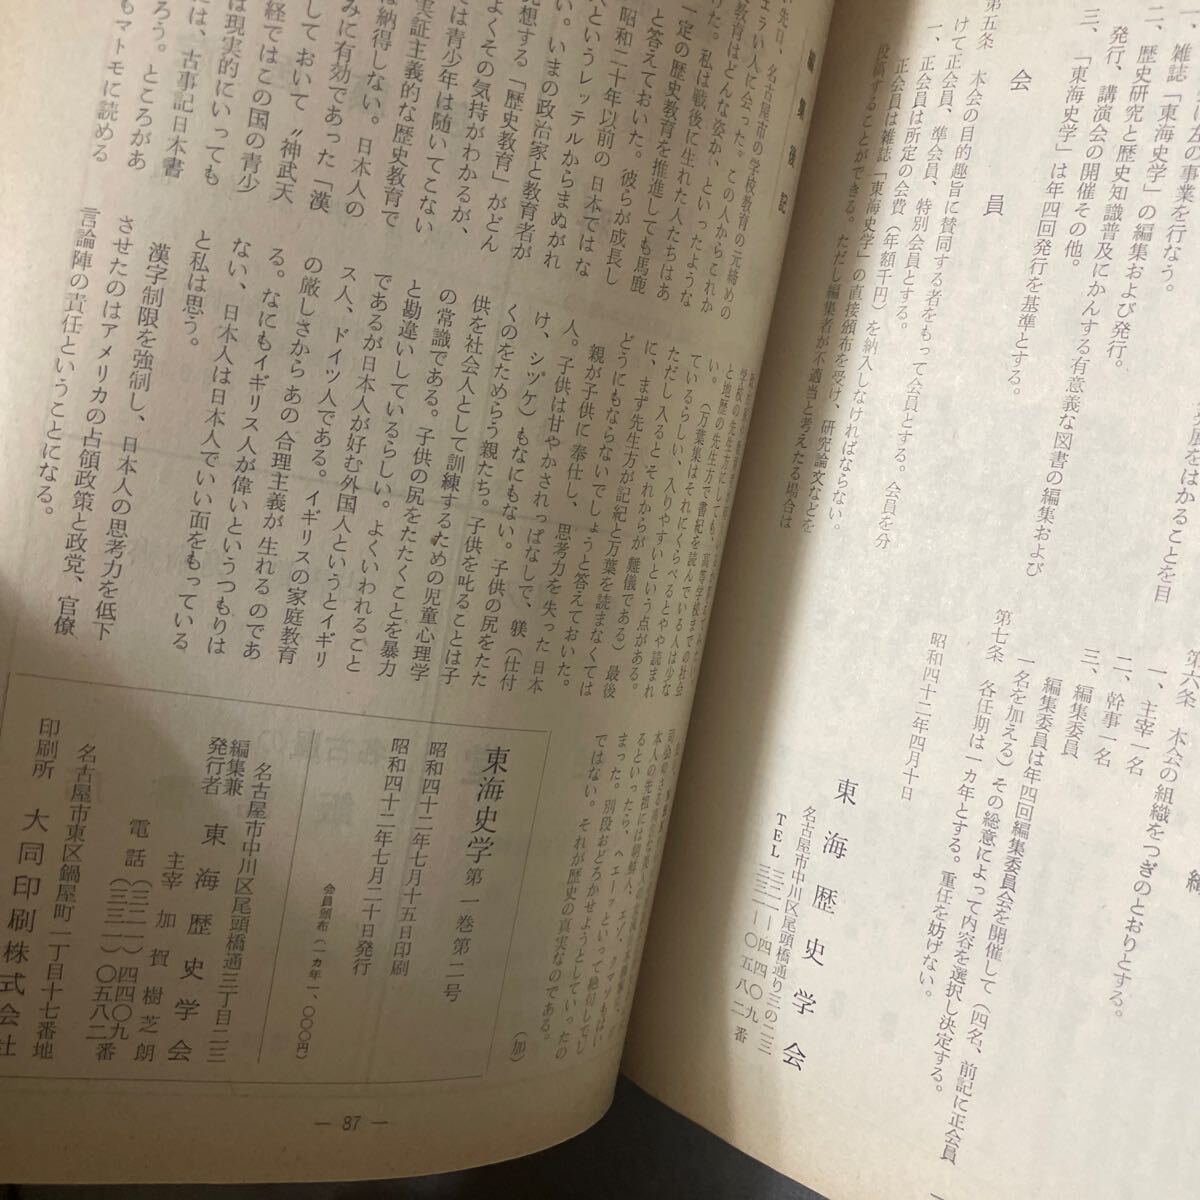 雑誌「東海史学」の編集および発行。
二、歴史研究と歴史知識普及にかんする有意義な図書の編集および
発行、講演会の開催その他。
三、「東海史学」は年四回発行を基準とする。
会員
第五条 本会の目的趣旨に賛同する者をもって会員とする。会員を分
けて正会員、準会員、特別会員とする。
一、正会員は所定の会費(年額千円)を納入しなければならない。
正会員は雑誌「東海史学」の直接頒布を受け、研究論文などを
投稿することができる。ただし編集者が不適当と考えたる場合は
第六条 本会の組織をつぎのとおりとする。
一、主宰一名
二、幹事一名
三、編集委員
編集委員は年四回編集委員会を開催して(四名、前記に正会員
一名を加える)その総意によって内容を選択し決定する。
第七条 各任期は一カ年とする。重任を妨げない。
昭和四十二年四月十日
東海歴史学会
名古屋市中川区尾頭橋通り三の二三
TEL 三二一―四四〇九
三三一―〇五八二 番
編集後記
い先日、名古屋市の学校教育の元締めの
エライ人に会った。この人からこれか
教育はどんな姿か、といったような
けた。私は戦後に生れた人たちはあ
一定の歴史教育を推進しても馬鹿
と答えておいた。彼らが成長し
昭和二十年以前の日本ではな
人というレッテルからまぬがれ
い。いまの政治家と教育者が
発想する「歴史教育」がどん
よくその気持がわかるが、
ては青少年は随いてこない
実証主義的な歴史教育で
は納得しない。日本人の
みに有効であった「漢
しておいて〝神武天
経ではこの国の青少
は現実的にいっても
には、古事記日本書
ろう。ところがあ
もマトモに読める
と地歴の先生方で書紀を読んでいる人は少な
い。(万葉集はそれにくらべるとやや読まれ
ているらしい、入りやすいという点がある。
ただし入るとそれからが難儀である)最後
に、まず先生方が記紀と万葉を読まなくては
どうにもならないでしょうと答えておいた。
親が子供に奉仕し、思考力を失った日本
人。子供は甘やかされっぱなしで、躾(仕付
け、シヅケ)もなにもない。子供の尻をたた
くのをためらう親たち。子供を叱ることは子
供を社会人として訓練するための児童心理学
の常識である。子供の尻をたたくことを暴力
と勘違いしているらしい。よくいわれること
であるが日本人が好む外国人というとイギリ
ス人、ドイツ人である。イギリスの家庭教育
の厳しさからあの合理主義が生れるのであ
る。なにもイギリス人が偉いというつもりは
ない、日本人は日本人でいい面をもっている
と私は思う。
漢字制限を強制し、日本人の思考力を低下
させたのはアメリカの占領政策と政党、官僚
言論陣の責任ということになる。
まった。別段おどろかせようとしていったの
ではない。それが歴史の真実なのである。
(加)
東海史学 第一巻第二号
昭和四十二年七月十五日印刷
昭和四十二年七月二十日発行
会員頒布(一カ年一、〇〇〇円)
名古屋市中川区尾頭橋通三丁目二三
編集兼
発行者 東海歴史学会
主宰 加賀樹芝朗
電話(三二一)四四〇九
(三三一)〇五八二番
名古屋市東区鍋屋町一丁目十七番地
印刷所 大同印刷株式会社
― 87 ―